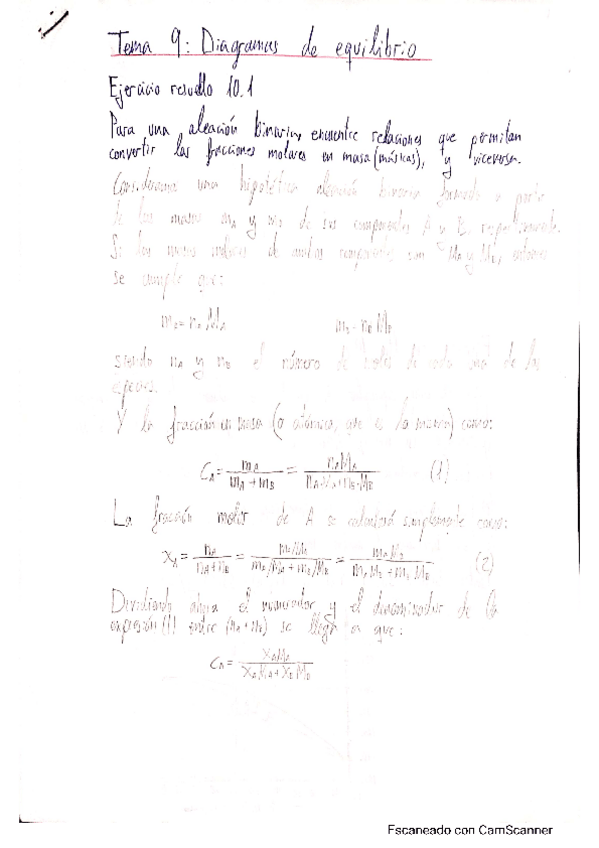 Tema 9: Diagramas de equilibrio
Ejercicio resuelto 10.1
Para una aleación binaria, encuentre relaciones que permitan
convertir las fracciones molares en masa (másicas), y viceversa.
Consideramos una hipotética aleación binaria formada a partir
de las masas mA y mB de sus componentes A y B, respectivamente.
Si las masas molares de ambos componentes son MA y MB, entonces
se cumple que:
mA = nA MA mB = nB MB
siendo nA y nB el número de moles de cada una de las
especies.
Y la fracción en masa (o atómica, que es lo mismo) como:
CA = mA / (mA + mB) = nA MA / (nA MA + nB MB) (1)
La fracción molar de A se redactará simplemente como:
XA = nA / (nA + nB) = (mA/MA) / (mA/MA + mB/MB) = mA MB / (mA MB + mB MA) (2)
Dividiendo ahora el numerador y el denominador de la
expresión (1) entre (nA + nB) se llega a que:
CA = XA MA / (XA MA + XB MB)
Escaneado con CamScanner